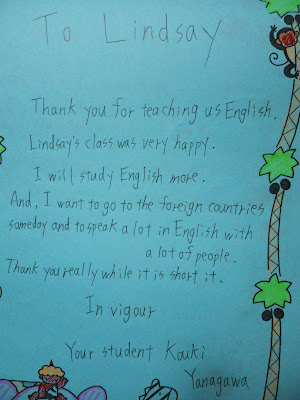 To Lindsay
Thank you for teaching us English.
Lindsay's class was very happy.
I will study English more.
And, I want to go to the foreign countries
someday and to speak a lot in English with
a lot of people.
Thank you really while it is short it.
In vigour
Your student Kouki
Yanagawa